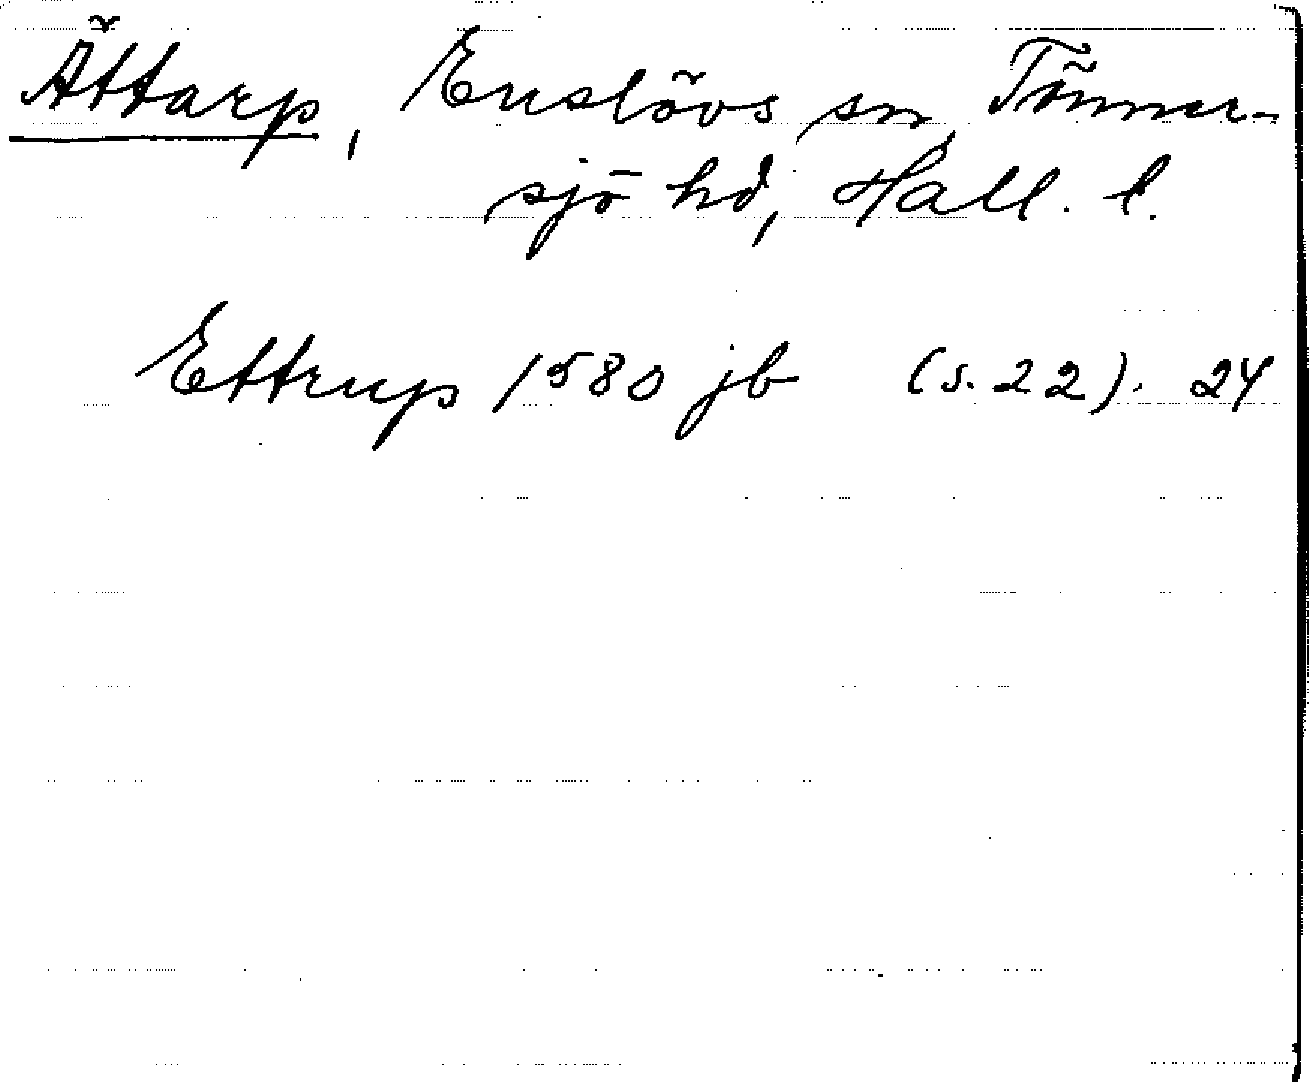 Ättarp, Enslövs sn, Tönner-
sjö hd, Hall. l.
Ettrup 1580 jb (s. 22). 24